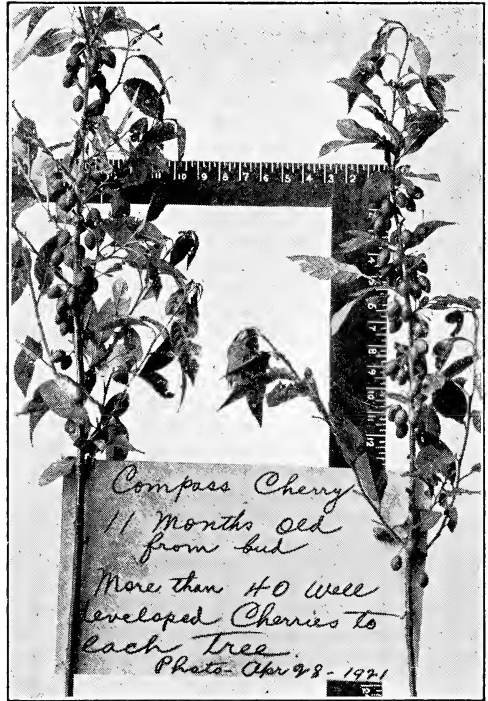 11 10 9 8 7 6 5 4 3 2
7
8
9
10
11
12
Compass Cherry
11 Months old
from bud
More than 40 well
eveloped Cherries to
each tree
Photo - Apr 28 - 1921